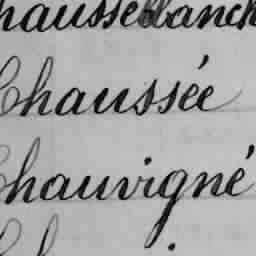 hausseblanch
Chaussée
Chauvigné